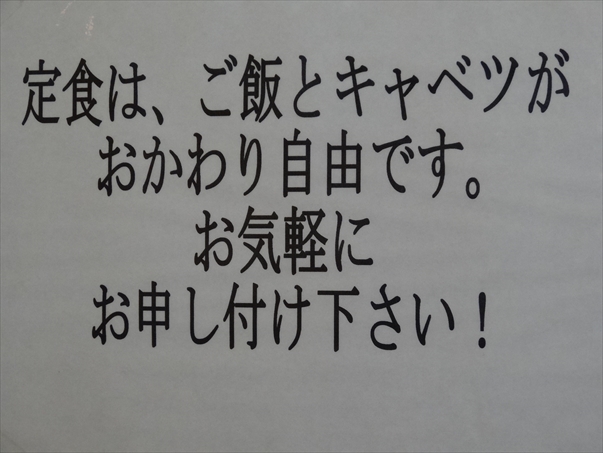 定食は、ご飯とキャベツが
おかわり自由です。
お気軽に
お申し付け下さい！